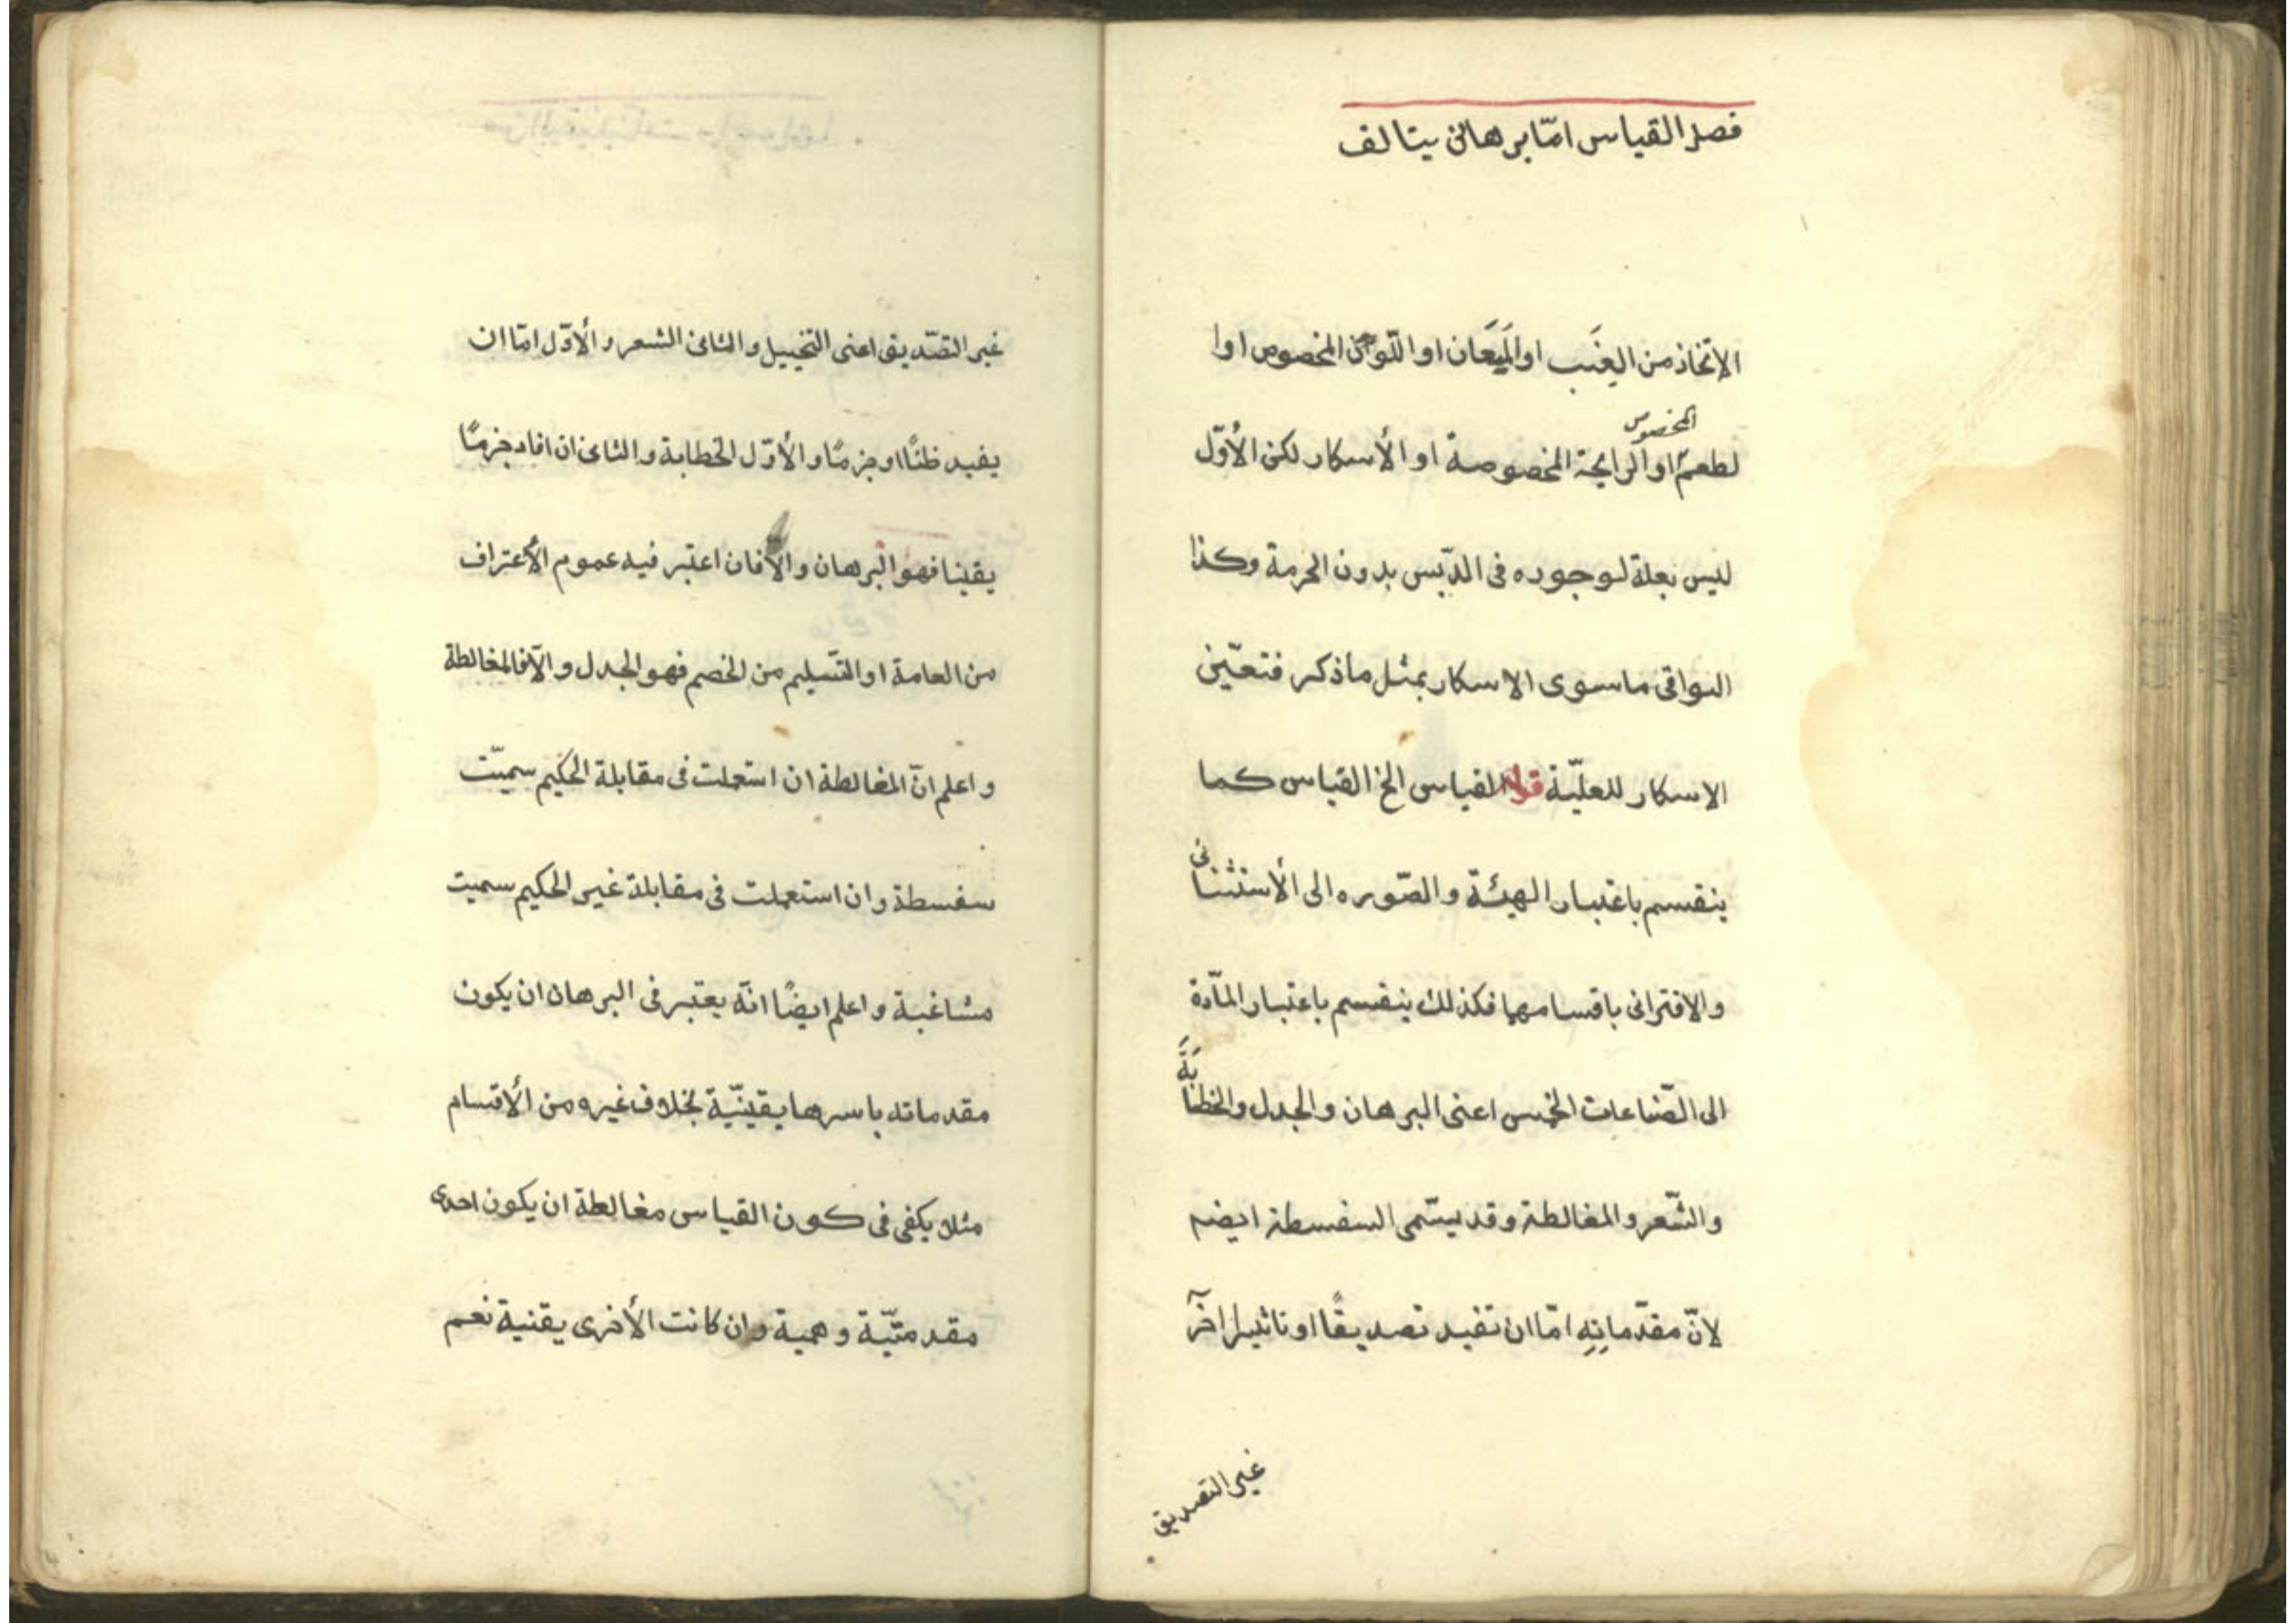 فصل القياس امّا برهانى يتالف
الاتخاذ من العِنَب او المَيَعَان او اللّون المخصوص اوا
المخصوص
لطعم او الرايحة المخصوصة او الأسكار لكن الأوّل
ليس بعلة لوجوده فى الدّبس بدون الحرمة وكذا
البواقى ماسوى الاسكار بمثل ماذكر فتعيّن
الاسكار للعليّة قوله القياس الخ القياس كما
ينقسم باعتبار الهيئة والصّوره الى الأستثنائى
والاقترانى باقسامهما فكذلك ينقسم باعتبار المادّة
الى الصّناعات الخمس اعنى البرهان والجدل والخطابَةَ
والشّعر والمغالطة وقد يسّمى السفسطة ايضم
لانّ مقدّماتِهِ امّا ان تفيد تصديقًا او تاثيرا اخرَ
غير التصديق
غير التصّديق اعنى التخييل والثانى الشعر والأوّل امّا ان
يفيد ظنًّا او جزمًا والأوّل الخطابة والثانى ان افاد جزمًا
يقينا فهو البرهان والّا فان اعتبر فيه عموم الأعتراف
من العامة او التّسليم من الخصم فهو الجدل والّا فالمغالطة
واعلم انّ المغالطة ان استعملت فى مقابلة الحكيم سميّت
سفسطة وان استعملت فى مقابلة غير الحكيم سميت
مشاغبة واعلم ايضًا انّه يعتبر فى البرهان ان يكون
مقدماته باسرها يقينيّة بخلاف غيره من الأقسام
مثلا يكفى فى كون القياس مغالطة ان يكون احدى
مقدمتيّة وهمية وان كانت الأخرى يقنية نعم